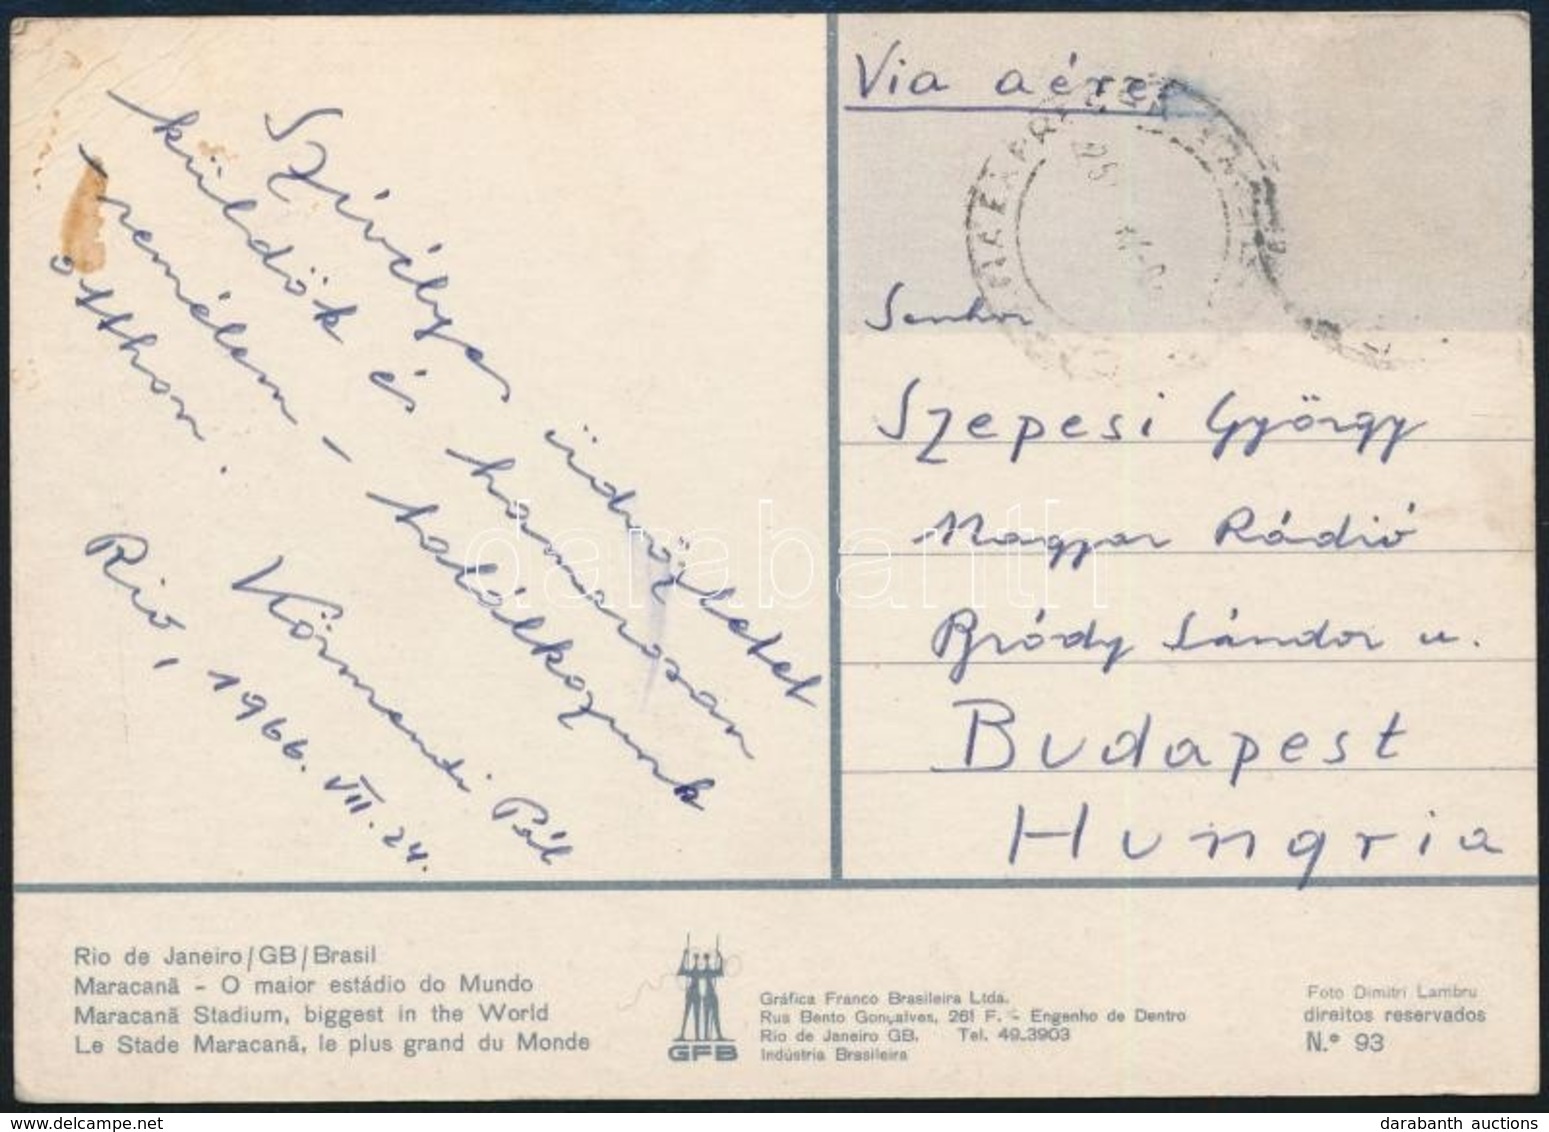 Szívélyes üdvözletet
küldök és hamarosan
remélem - találkozunk
otthon.
Körmendi Pál
Rio, 1966. VII. 24.
Via aérea
Senhor
Szepesi György
Magyar Rádió
Bródy Sándor u.
Budapest
Hungria
darabanth
Rio de Janeiro/GB/Brasil
Maracanã - O maior estádio do Mundo
Maracanã Stadium, biggest in the World
Le Stade Maracanã, le plus grand du Monde
GFB
Gráfica Franco Brasileira Ltda.
Rua Bento Gonçalves, 261 F. - Engenho de Dentro
Rio de Janeiro GB. Tel. 49.3903
Indústria Brasileira
Foto Dimitri Lambru
direitos reservados
N.º 93
darabanth auctions